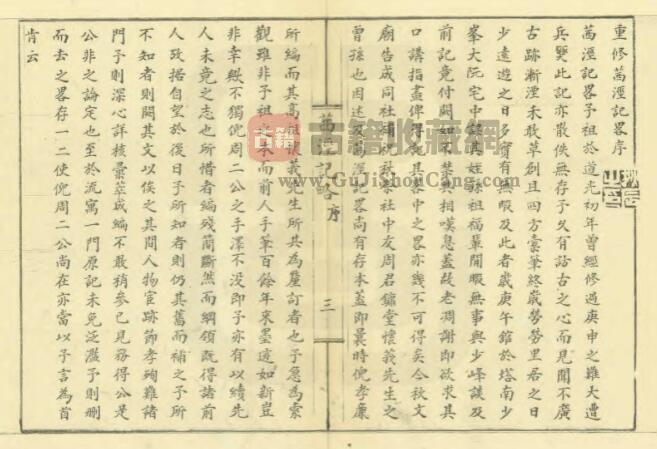 重修萬溼記畧序
萬溼記畧予祖於道光初年曾經修過庚申之難大遭
兵燹此記亦散佚無存予久有話古之心而見聞不廣
古跡漸湮未敢草創且四方橐筆終歲勞勞里居之日
少遠遊之日多實有暇及此者歲庚午館於塔南少
峯大阮宅中課其姪孫祖福葉閒暇無事與少峰談及
前記竟付闕如不禁共相嘆息蓋故老凋謝即欲求其
口講指畫俾得悉其中之畧亦幾不可得矣今秋文
廟告成同社補祀社中友周君鏞堂懷義先生之
曾孫也因述及萬溼記畧尚有存本蓋即曩時倪孝廉
所編而其高祖懷義先生所共為釐訂者也予急為索
觀雖非予祖之本而前人手筆百餘年來墨迹如新豈
非幸歟不獨倪周二公之手澤不沒即予亦有以續先
人未竟之志也所惜者編殘簡斷然而綱領既得諸前
人孜掿自望於後日予所知者則仍其舊而補之予所
不知者則闕其文以俟之其間人物宦跡節孝殉難諸
門予則深心詳核彙萃成編不敢稍參己見務得公是
公非之論定也至於流寓一門原記未免泛濫予則刪
而去之畧存一二使倪周二公尚在亦當以予言為首
肯云
萬溼記畧序
三
古籍
古籍收藏網
www.GuJiShouCang.com